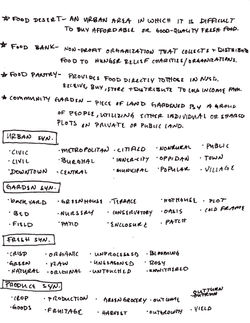 ★ FOOD DESERT - AN URBAN AREA IN WHICH IT IS DIFFICULT
TO BUY AFFORDABLE OR GOOD-QUALITY FRESH FOOD.
★ FOOD BANK - NON-PROFIT ORGANIZATION THAT COLLECTS + DISTRIBUTES
FOOD TO HUNGER RELIEF CHARITIES/ORGANIZATIONS.
★ FOOD PANTRY - PROVIDES FOOD DIRECTLY TO THOSE IN NEED.
RECEIVE, BUY, STORE + DISTRIBUTE TO LOW INCOME FAM.
★ COMMUNITY GARDEN - PIECE OF LAND GARDENED BY A GROUP
OF PEOPLE, UTILIZING EITHER INDIVIDUAL OR SHARED
PLOTS ON PRIVATE OR PUBLIC LAND.
URBAN SYN.
·CIVIC ·METROPOLITAN ·CITIFIED ·NONRURAL ·PUBLIC
·CIVIL ·BURGHAL ·INNER-CITY ·OPPIDAN ·TOWN
·DOWNTOWN ·CENTRAL ·MUNICIPAL ·POPULAR ·VILLAGE
GARDEN SYN.
·BACKYARD ·GREENHOUSE ·TERRACE ·HOTHOUSE ·PLOT
·BED ·NURSERY ·CONSERVATORY ·OASIS ·COLD FRAME
·FIELD ·PATIO ·ENCLOSURE ·PATCH
FRESH SYN.
·CRISP ·ORGANIC ·UNPROCESSED ·BLOOMING
·GREEN ·RAW ·UNSEASONED ·ROSY
·NATURAL ·ORIGINAL ·UNTOUCHED ·UNWITHERED
PRODUCE SYN.
·CROP ·PRODUCTION ·GREENGROCERY ·OUTCOME ·OUTTURN
·GOODS ·FRUITAGE ·HARVEST ·OUTGROWTH ·YIELD